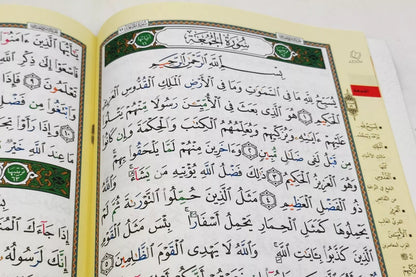 سُورَةُ الجُمُعَةِ
بِسْمِ ٱللَّهِ ٱلرَّحْمَٰنِ ٱلرَّحِيمِ
يُسَبِّحُ لِلَّهِ مَا فِى ٱلسَّمَٰوَٰتِ وَمَا فِى ٱلْأَرْضِ ٱلْمَلِكِ ٱلْقُدُّوسِ ٱلْعَزِيزِ
ٱلْحَكِيمِ ١ هُوَ ٱلَّذِى بَعَثَ فِى ٱلْأُمِّيِّـۧنَ رَسُولًا مِّنْهُمْ يَتْلُوا۟
عَلَيْهِمْ ءَايَٰتِهِۦ وَيُزَكِّيهِمْ وَيُعَلِّمُهُمُ ٱلْكِتَٰبَ وَٱلْحِكْمَةَ وَإِن كَانُوا۟
مِن قَبْلُ لَفِى ضَلَٰلٍ مُّبِينٍ ٢ وَءَاخَرِينَ مِنْهُمْ لَمَّا يَلْحَقُوا۟ بِهِمْ
وَهُوَ ٱلْعَزِيزُ ٱلْحَكِيمُ ٣ ذَٰلِكَ فَضْلُ ٱللَّهِ يُؤْتِيهِ مَن يَشَآءُ وَٱللَّهُ
ذُو ٱلْفَضْلِ ٱلْعَظِيمِ ٤ مَثَلُ ٱلَّذِينَ حُمِّلُوا۟ ٱلتَّوْرَىٰةَ ثُمَّ لَمْ
يَحْمِلُوهَا كَمَثَلِ ٱلْحِمَارِ يَحْمِلُ أَسْفَارًۢا بِئْسَ مَثَلُ ٱلْقَوْمِ
ٱلَّذِينَ كَذَّبُوا۟ بِـَٔايَٰتِ ٱللَّهِ وَٱللَّهُ لَا يَهْدِى ٱلْقَوْمَ ٱلظَّٰلِمِينَ
يَٰٓأَيُّهَا ٱلَّذِينَ ءَامَنُوٓا۟
فَٱسْعَوْا۟ إِلَىٰ ذِكْرِ ٱللَّهِ
تَعْلَمُونَ ٩ فَإِذَا
وَٱبْتَغُوا۟ مِن فَضْلِ
وَإِذَا رَأَوْا۟
مَا عِندَ ٱللَّهِ خَيْرٌ
إِذَا جَآءَكَ
إِنَّكَ لَرَسُولُهُۥ